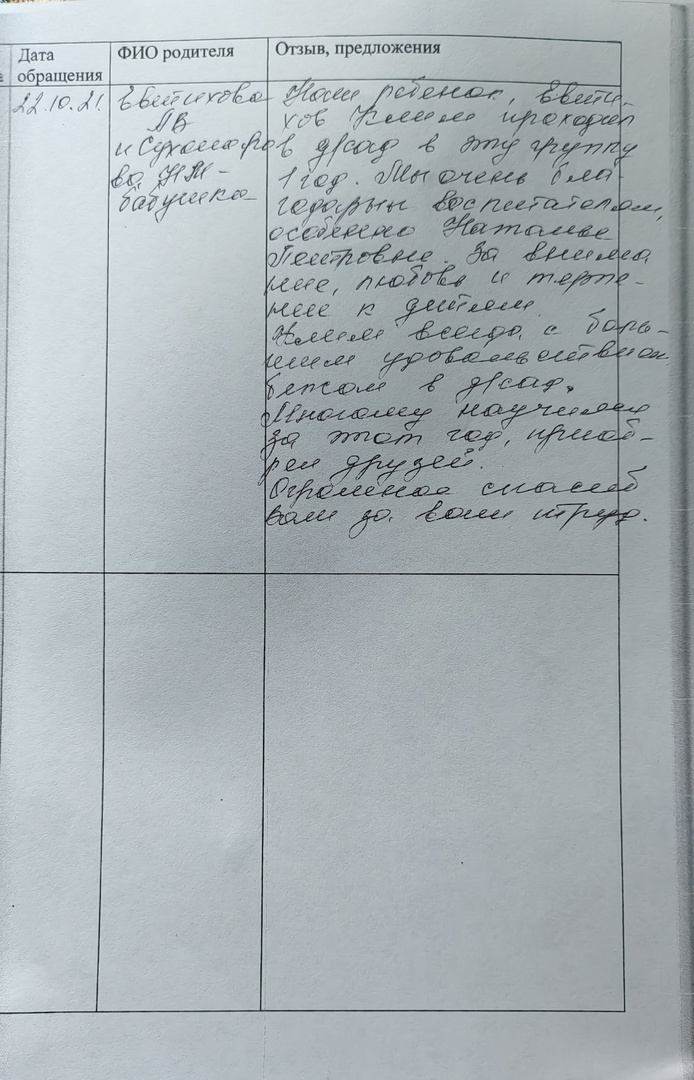 Дата обращения
ФИО родителя
Отзыв, предложения
22.10.21.
Евтихова
АВ
и Сухомаро
ва НМ -
бабушка
Наш ребенок, Евти-
хов Клим проходил
в д/сад в эту группу
1 год. Мы очень бла-
годарны воспитателям,
особенно Наталье
Петровне. За внима
ние, любовь и терпе-
ние к детям.
Клим всегда с боль-
шим удовольствием
бежал в д/сад.
Многому научился
за этот год, приоб-
рел друзей.
Огромное спасиб
вам за ваш труд.